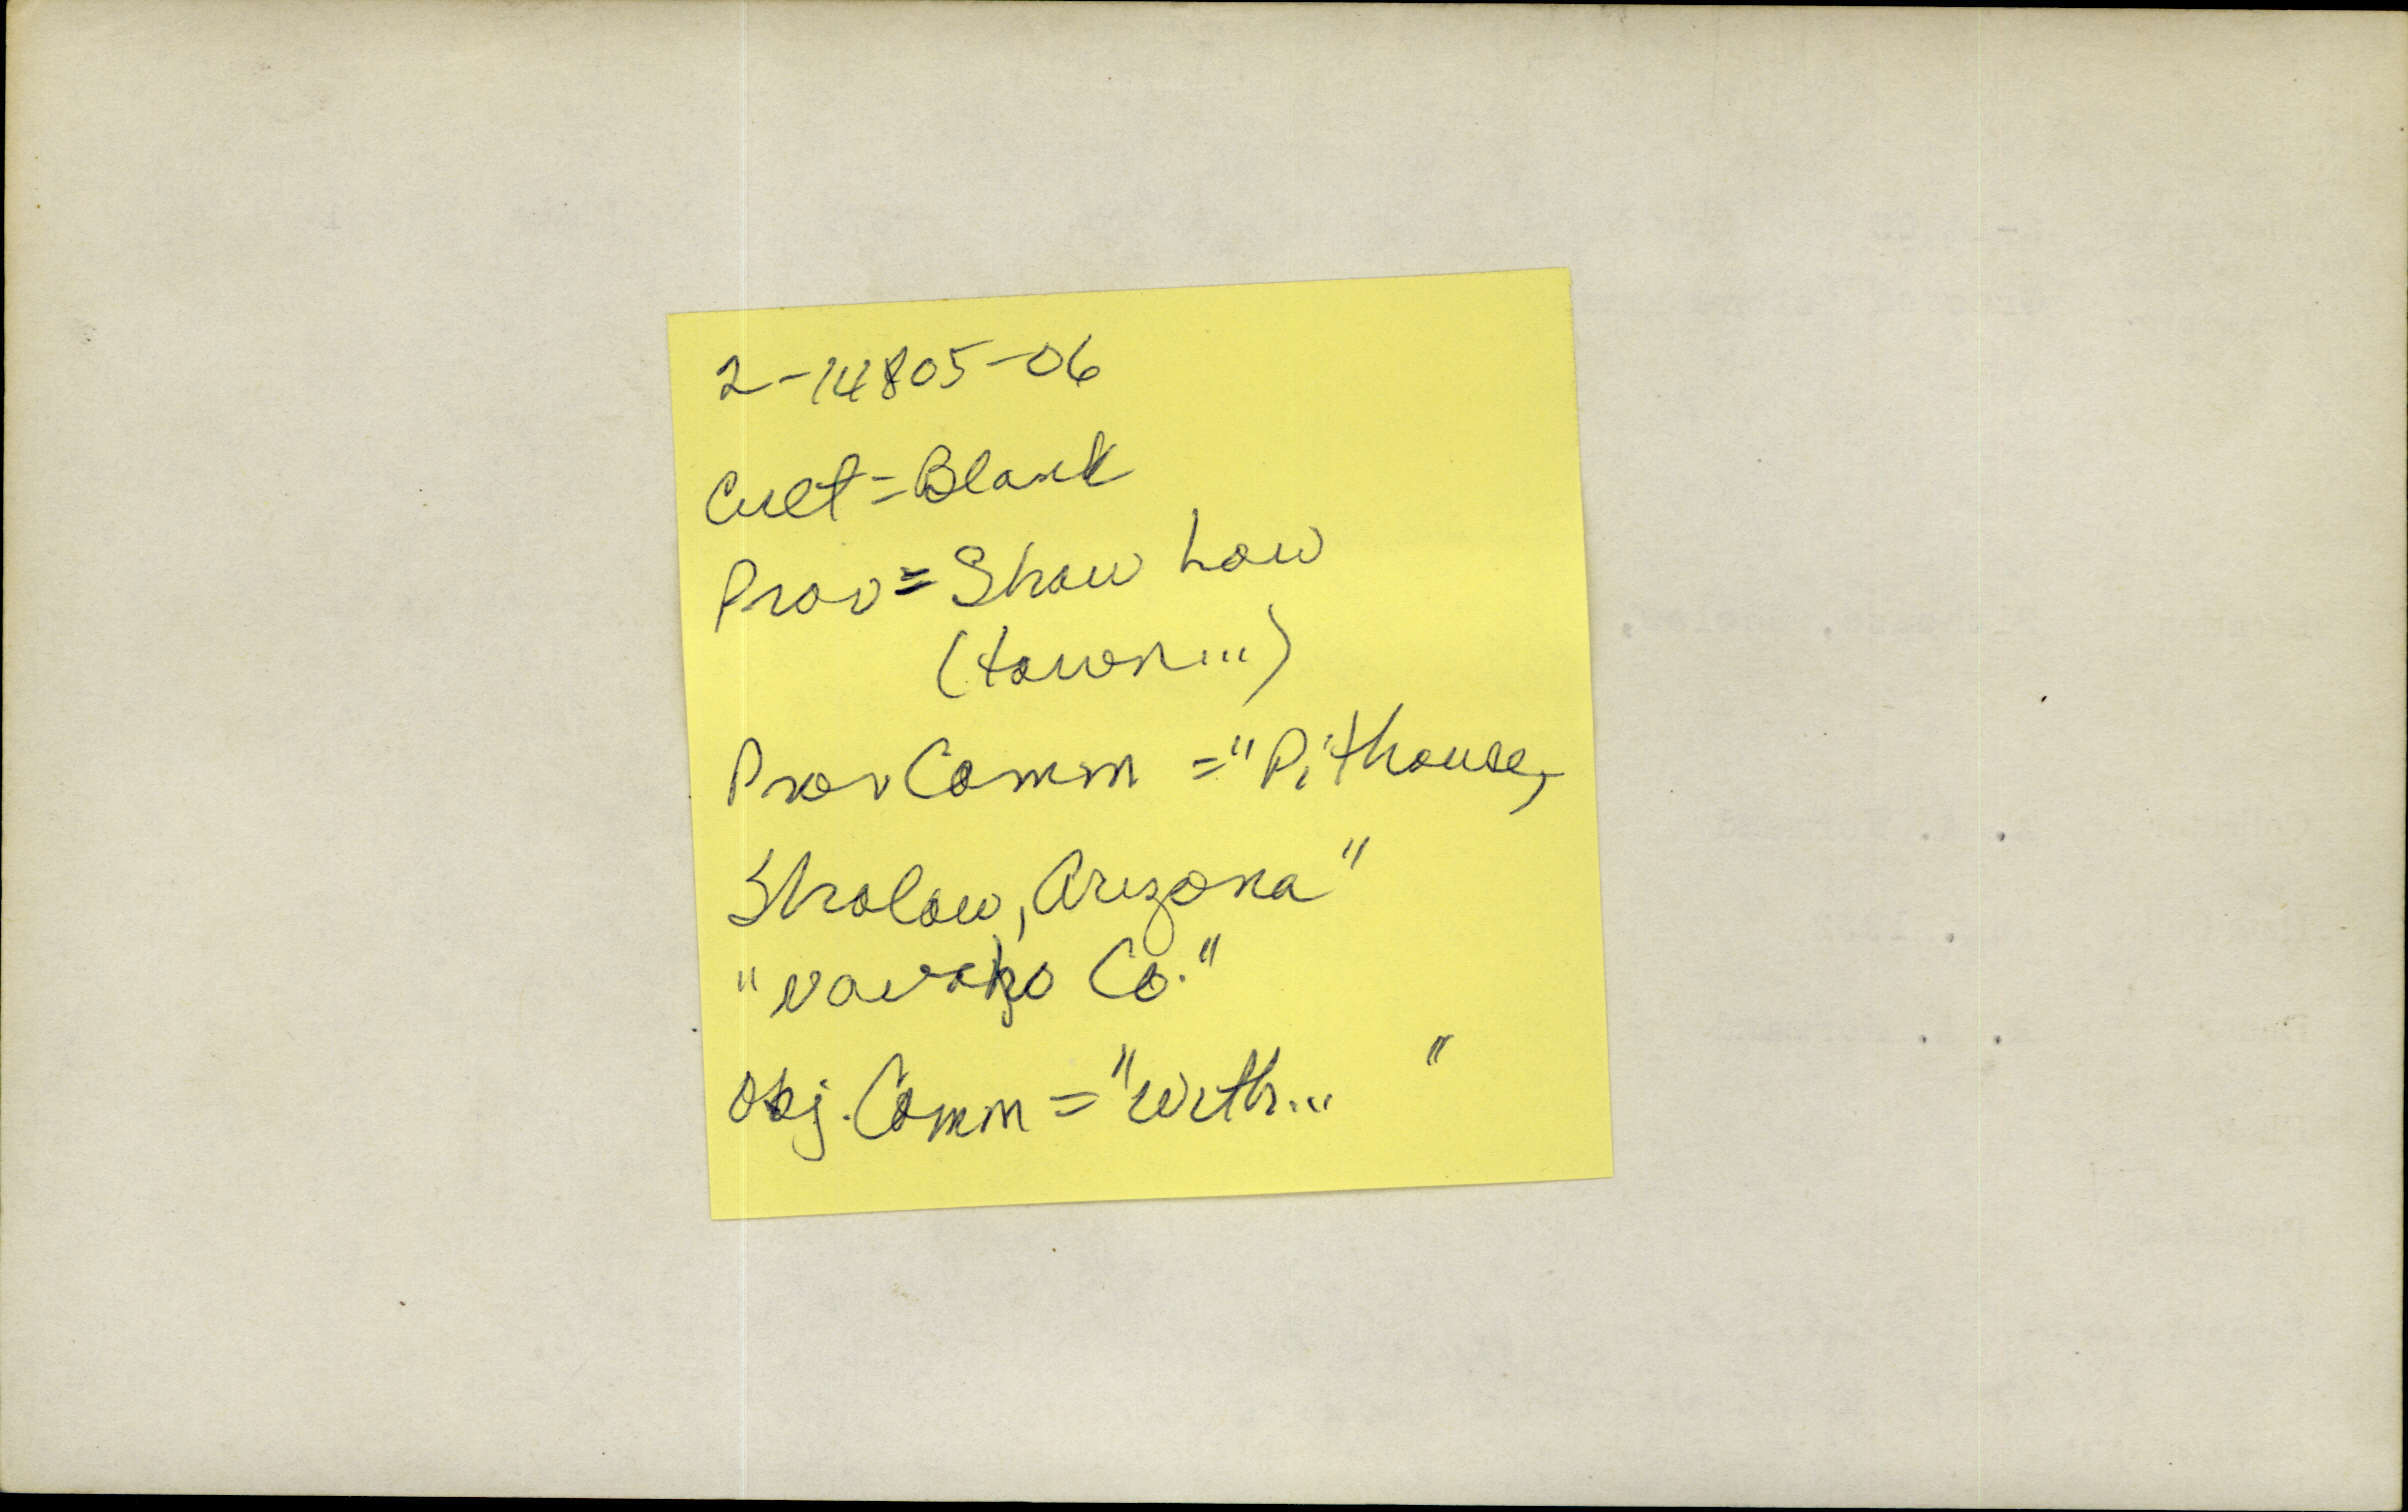 2-14805-06
Cult = Blank
Prov = Show Low
(town...)
Prov Comm = "Pithouse,
Sholow, Arizona"
"Navaho Co."
Obj. Comm = "With... "